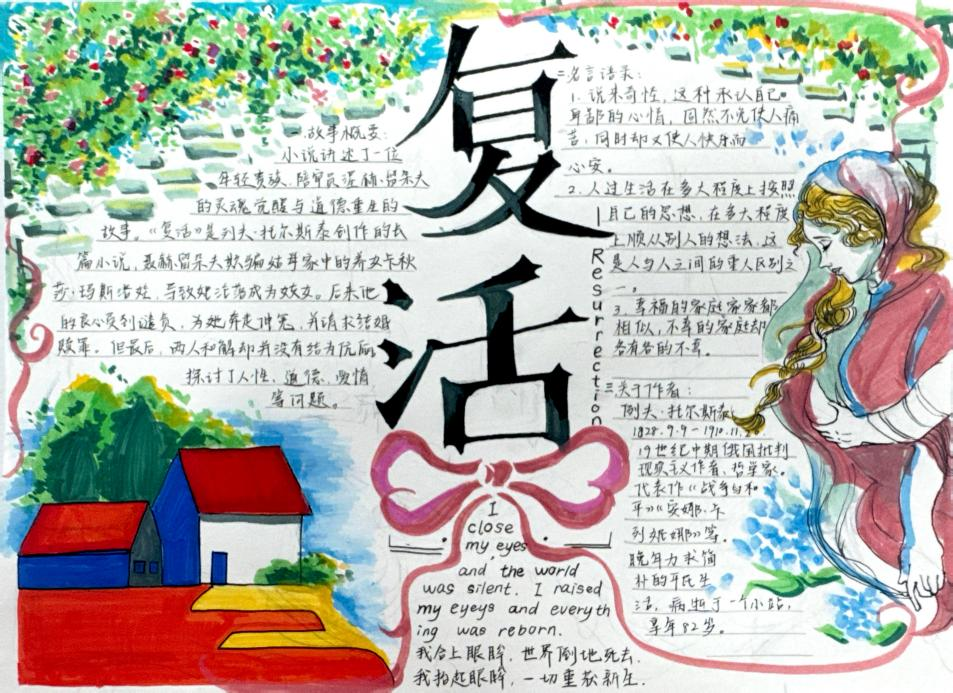 复活
Resurrection
一.故事概要:
小说讲述了一位
年轻贵族、陪审员涅赫留朵夫
的灵魂觉醒与道德重生的
故事。《复活》是列夫·托尔斯泰创作的长
篇小说,聂赫留朵夫欺骗姑母家中的养女卡秋
莎·玛斯洛娃,导致她沦落成为妓女。后来他
的良心受到谴责,为她奔走伸冤,并请求结婚
赎罪。但最后,两人和解却并没有结为伉俪。
探讨了人性、道德、爱情
等问题。
二名言语录:
1. 说来奇怪,这种承认自己
卑鄙的心情,固然不免使人痛
苦,同时却又使人快乐而
心安。
2. 人过生活在多大程度上按照
自己的思想,在多大程度
上顺从别人的想法,这
是人与人之间的重大区别之
一。
3. 幸福的家庭家家都
相似,不幸的家庭却
各有各的不幸。
三关于作者:
列夫·托尔斯泰
1828.9.9-1910.11.
19世纪中期俄国批判
现实主义作者、哲学家。
代表作《战争与和
平》《安娜·卡
列妮娜》等。
晚年力求简
朴的平民生
活,病逝于一个小站,
享年82岁。
I
close
my eyes
and the world
was silent. I raised
my eyeys and everyth
ing was reborn.
我合上眼眸,世界倒地死去.
我抬起眼眸,一切重获新生.